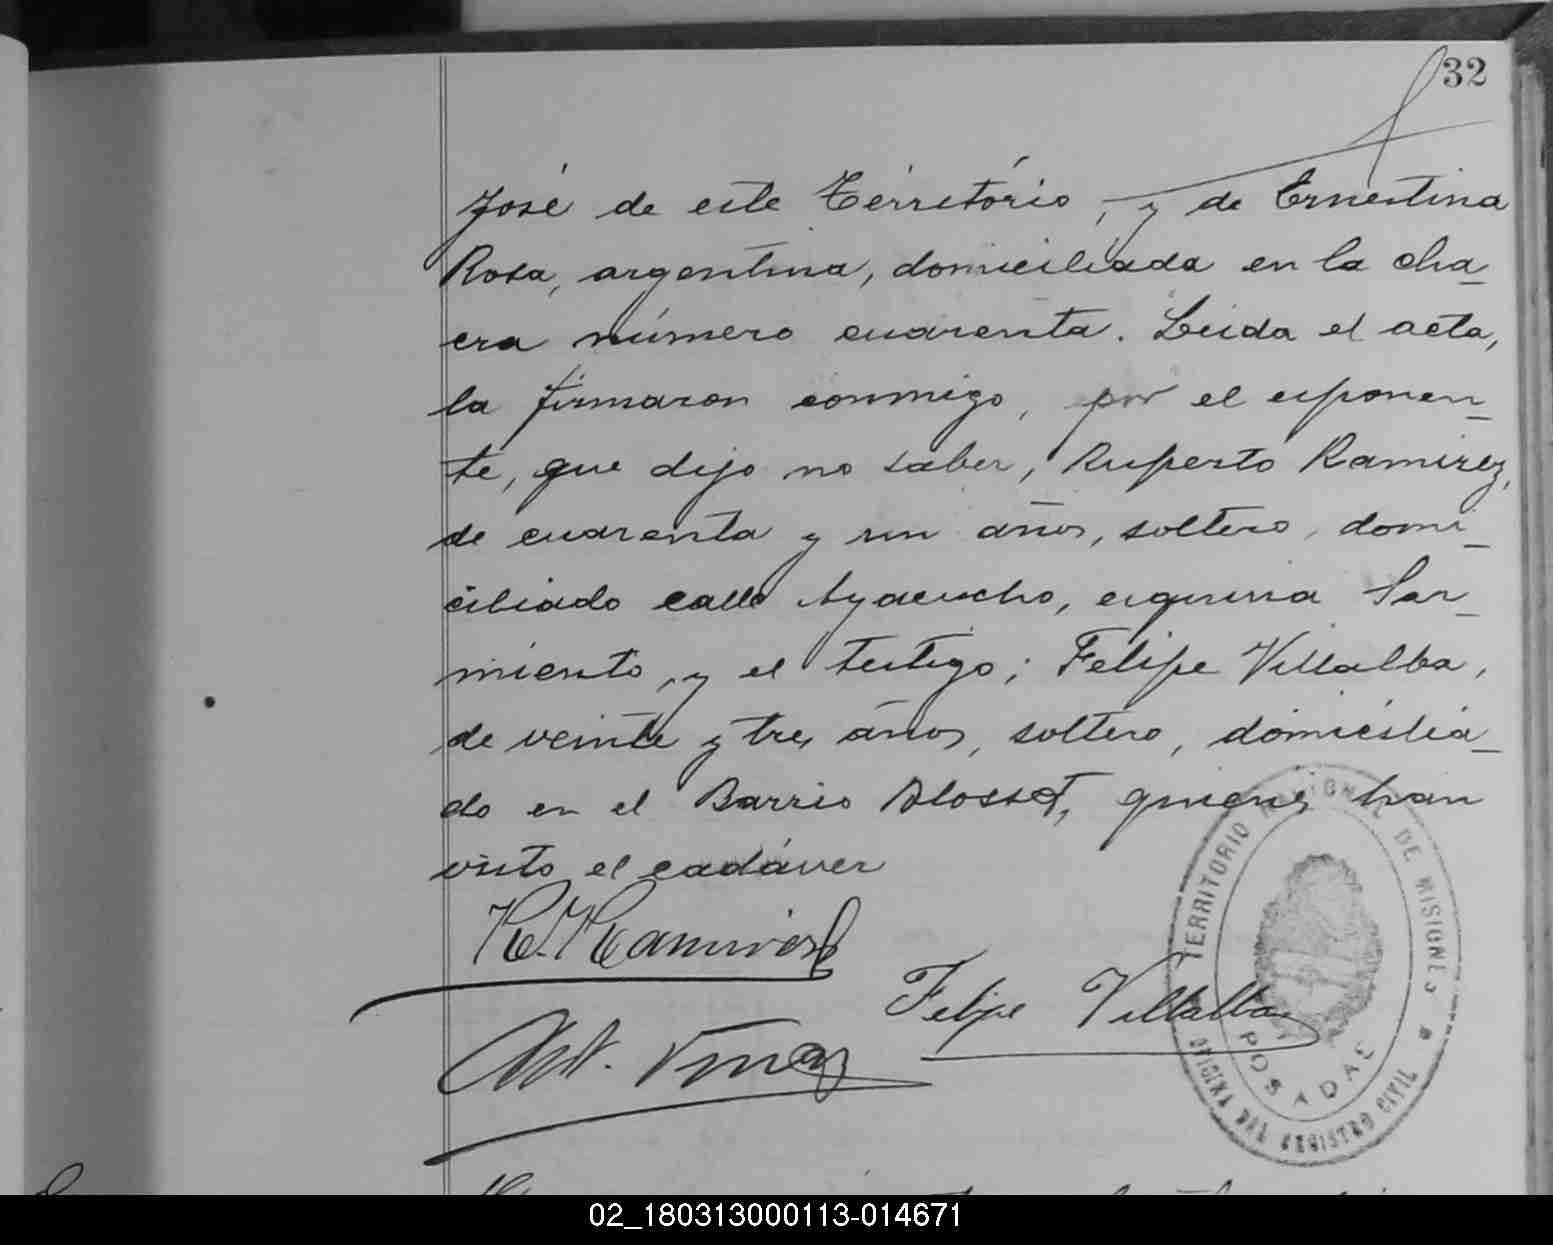 32
José de este Território, y de Ernestina
Rosa, argentina, domiciliada en la cha_
cra número cuarenta. Leida el acta,
la firmaron conmigo, por el exponen_
te, que dijo no saber, Ruperto Ramirez,
de cuarenta y un años, soltero, domi_
ciliado calle Ayacucho, esquina Sar_
miento, y el testigo; Felipe Villalba,
de veinte y tres años, soltero, domicilia_
do en el Barrio Blosset, quienes han
visto el cadáver
R. Ramirez
Felipe Villalba
TERRITORIO NACIONAL DE MISIONES
POSADAS
OFICINA DEL REGISTRO CIVIL
02_180313000113-014671